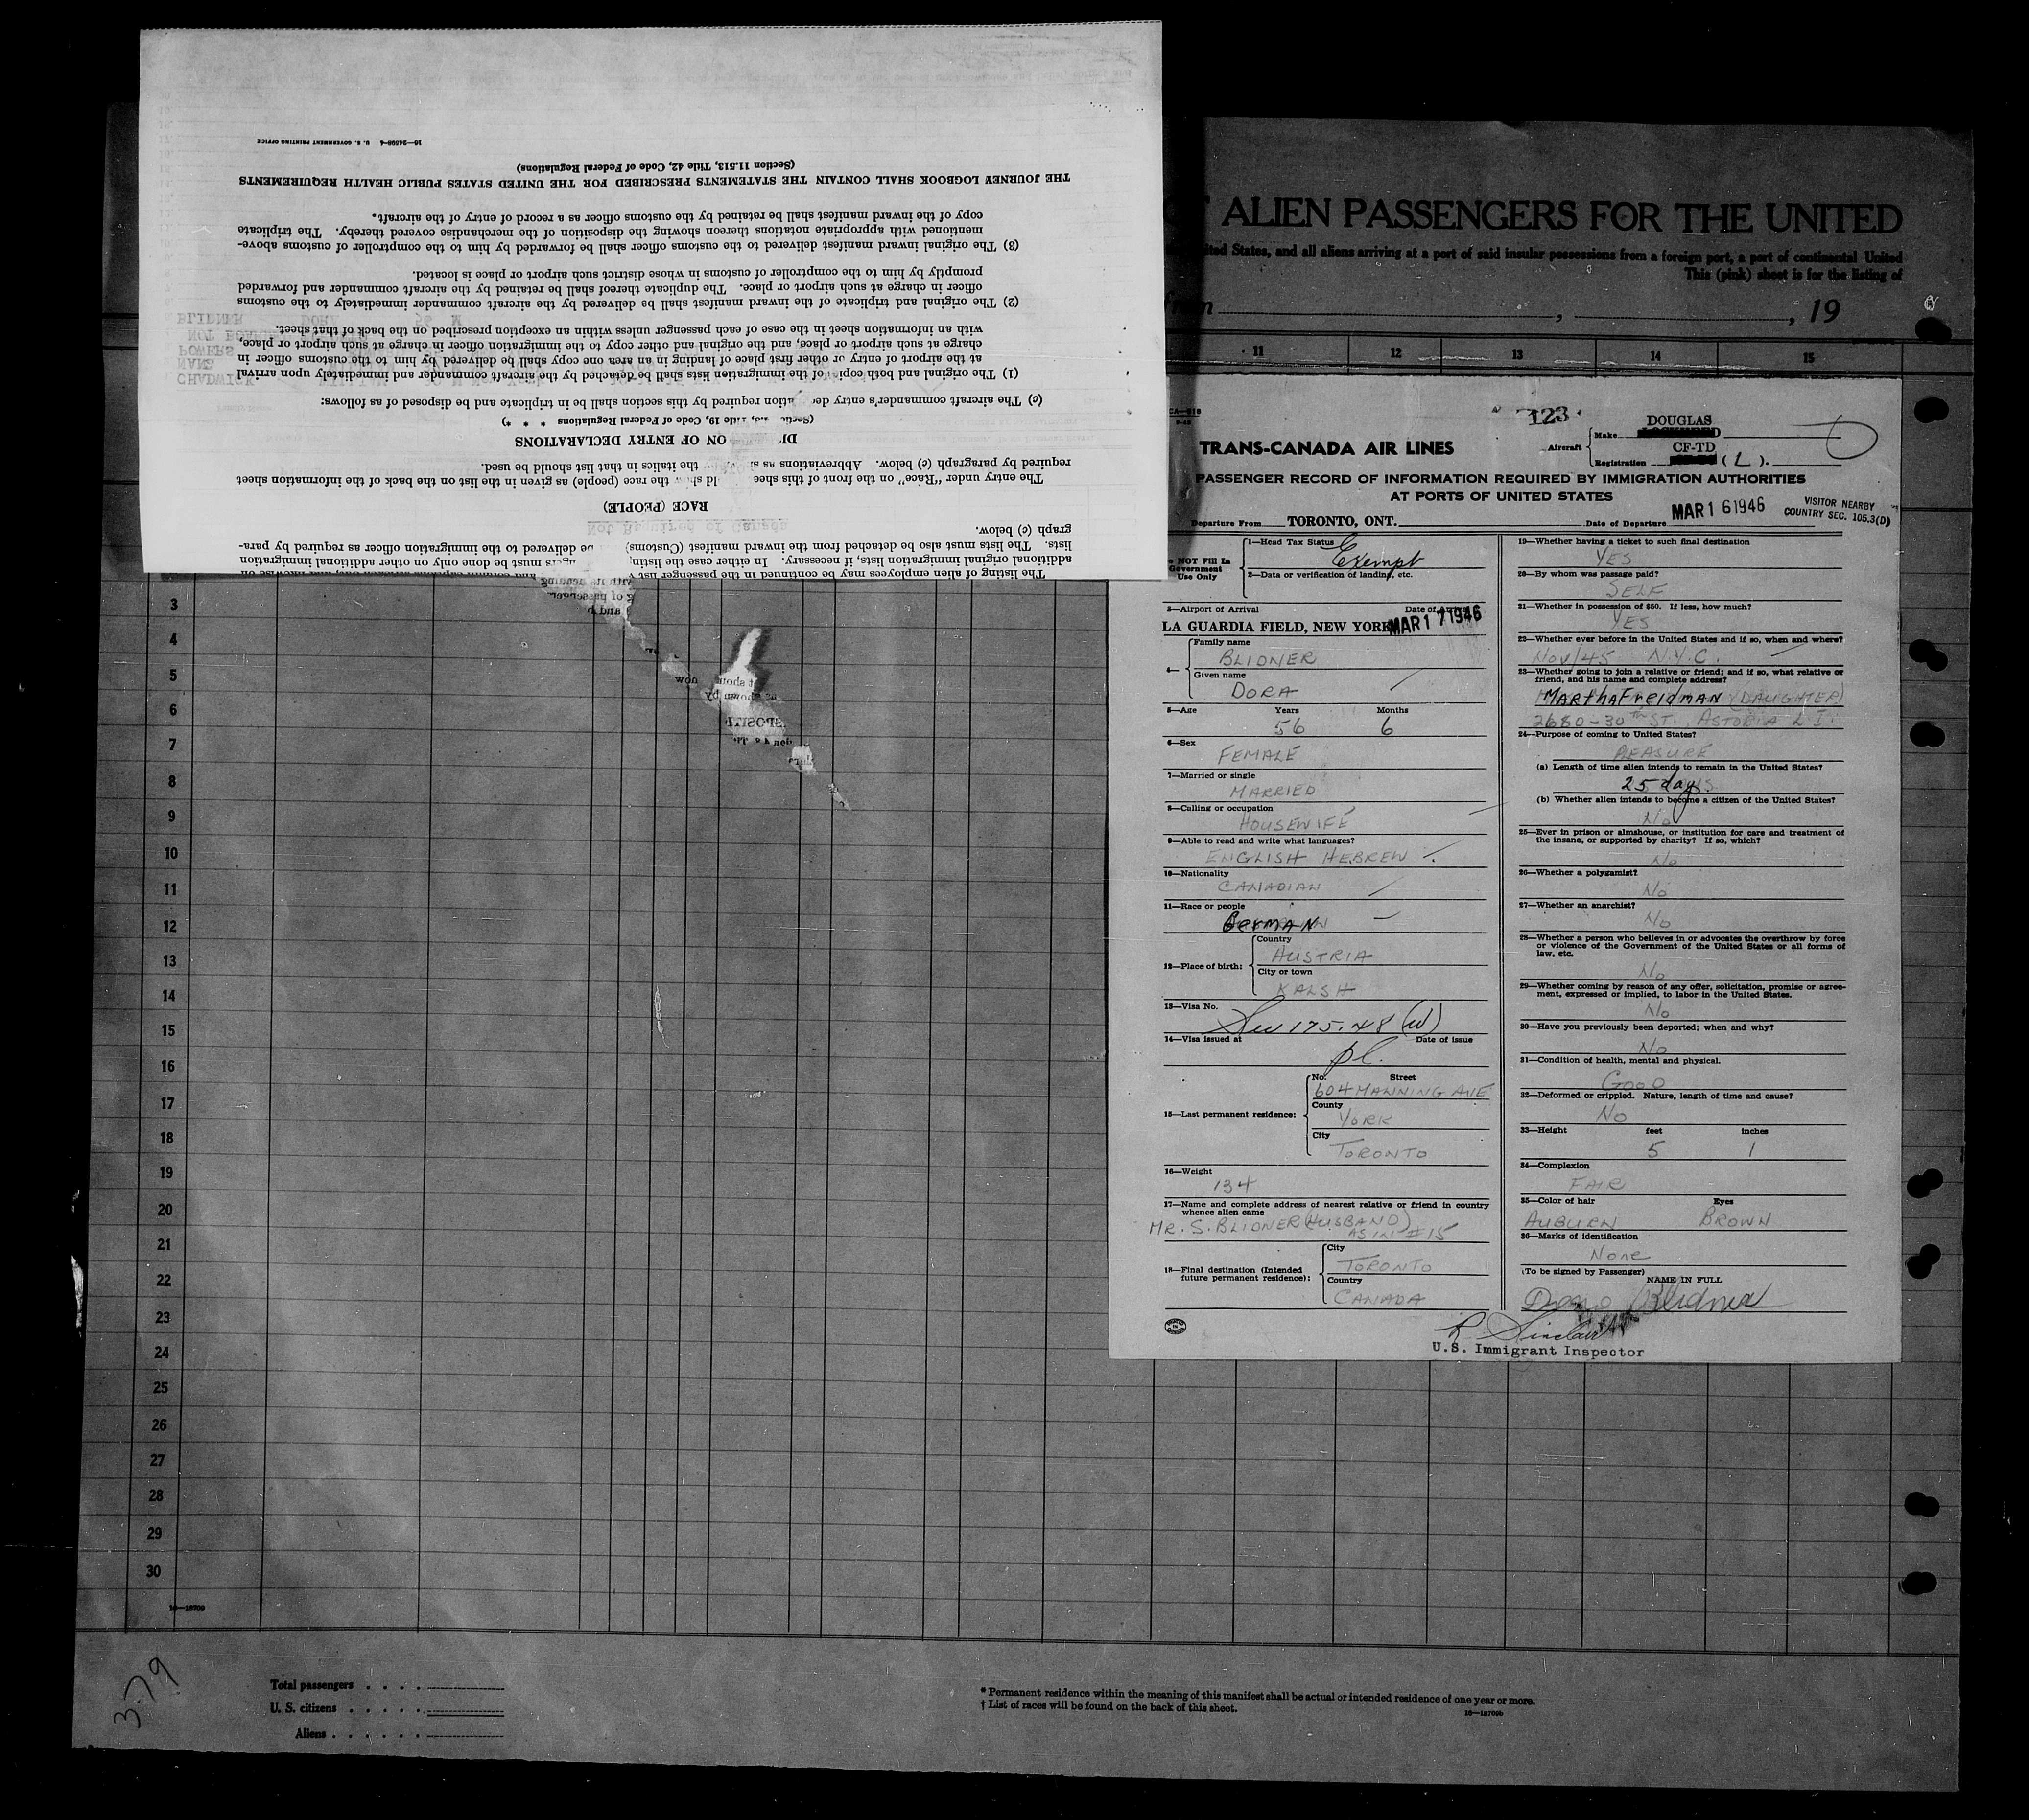 16—24598-4 U. S. GOVERNMENT PRINTING OFFICE
(Section 11.513, Title 42, Code of Federal Regulations)
THE JOURNEY LOGBOOK SHALL CONTAIN THE STATEMENTS PRESCRIBED FOR THE UNITED STATES PUBLIC HEALTH REQUIREMENTS
copy of the inward manifest shall be retained by the customs officer as a record of entry of the aircraft.
mentioned with appropriate notations thereon showing the disposition of the merchandise covered thereby. The triplicate
(3) The original inward manifest delivered to the customs officer shall be forwarded by him to the comptroller of customs above-
promptly by him to the comptroller of customs in whose district such airport or place is located.
officer in charge at such airport or place. The duplicate thereof shall be retained by the aircraft commander and forwarded
(2) The original and triplicate of the inward manifest shall be delivered by the aircraft commander immediately to the customs
with an information sheet in the case of each passenger unless within an exception prescribed on the back of that sheet.
charge at such airport or place, and the original and other copy to the immigration officer in charge at such airport or place,
at the airport of entry or other first place of landing in an area one copy shall be delivered by him to the customs officer in
(1) The original and both copies of the immigration lists shall be detached by the aircraft commander and immediately upon arrival
(c) The aircraft commander's entry declaration required by this section shall be in triplicate and be disposed of as follows:
Title 19, Code of Federal Regulations * * *)
ON OF ENTRY DECLARATIONS
required by paragraph (c) below. Abbreviations as the italics in that list should be used.
The entry under "Race" on the front of this sheet should show the race (people) as given in the list on the back of the information sheet
RACE (PEOPLE)
graph (c) below.
lists. The lists must also be detached from the inward manifest (Customs) be delivered to the immigration officer as required by para-
additional original immigration lists, if necessary. In either case the listing must be done only on other additional immigration
The listing of alien employees may be continued in the passenger list
BLIDNER DORA 56
POWERS
NAME
CHADWICK
Not Required of Canada
ALIEN PASSENGERS FOR THE UNITED
ited States, and all aliens arriving at a port of said insular possessions from a foreign port, a port of continental United
This (pink) sheet is for the listing of
, , 19
11 12 13 14 15
123
TRANS-CANADA AIR LINES
Aircraft Make DOUGLAS
Registration CF-TD (L).
PASSENGER RECORD OF INFORMATION REQUIRED BY IMMIGRATION AUTHORITIES
AT PORTS OF UNITED STATES
Departure From TORONTO, ONT. Date of Departure MAR 16 1946
VISITOR NEARBY
COUNTRY SEC. 105.3(D)
NOT Fill In
Government
Use Only
1—Head Tax Status Exempt
2—Data or verification of landing, etc.
3—Airport of Arrival Date of
LA GUARDIA FIELD, NEW YORK MAR 17 1946
4— Family name
BLIDNER
Given name
DORA
5—Age Years Months
56 6
6—Sex
FEMALE
7—Married or single
MARRIED
8—Calling or occupation
HOUSEWIFE
9—Able to read and write what languages?
ENGLISH HEBREW
10—Nationality
CANADIAN
11—Race or people
GERMAN
12—Place of birth: Country
AUSTRIA
City or town
KALSH
13—Visa No.
Sec 175.48 (d)
14—Visa issued at Date of issue
pl.
15—Last permanent residence: No. Street
604 MANNING AVE
County
YORK
City
TORONTO
16—Weight
134
17—Name and complete address of nearest relative or friend in country
whence alien came
MR. S. BLIDNER (HUSBAND)
AS IN #15
18—Final destination (Intended
future permanent residence):
City
TORONTO
Country
CANADA
19—Whether having a ticket to such final destination
YES
20—By whom was passage paid?
SELF
21—Whether in possession of $50. If less, how much?
YES
22—Whether ever before in the United States and if so, when and where?
Nov/45 N.Y.C.
23—Whether going to join a relative or friend; and if so, what relative or
friend, and his name and complete address?
Martha Freidman (DAUGHTER)
2680-30th ST., ASTORIA L.I.
24—Purpose of coming to United States?
PLEASURE
(a) Length of time alien intends to remain in the United States?
25 days
(b) Whether alien intends to become a citizen of the United States?
No
25—Ever in prison or almshouse, or institution for care and treatment of
the insane, or supported by charity? If so, which?
No
26—Whether a polygamist?
No
27—Whether an anarchist?
No
28—Whether a person who believes in or advocates the overthrow by force
or violence of the Government of the United States or all forms of
law, etc.
No
29—Whether coming by reason of any offer, solicitation, promise or agree-
ment, expressed or implied, to labor in the United States.
No
30—Have you previously been deported; when and why?
No
31—Condition of health, mental and physical.
GOOD
32—Deformed or crippled. Nature, length of time and cause?
No
33—Height feet inches
5 1
34—Complexion
FAIR
35—Color of hair Eyes
AUBURN BROWN
36—Marks of identification
None
(To be signed by Passenger)
NAME IN FULL
Dora Blidner
R Sinclair
U.S. Immigrant Inspector
3
4
5
6
7
8
9
10
11
12
13
14
15
16
17
18
19
20
21
22
23
24
25
26
27
28
29
30
16—18709
379
Total passengers
U. S. citizens
Aliens
* Permanent residence within the meaning of this manifest shall be actual or intended residence of one year or more.
† List of races will be found on the back of this sheet.
16—18709b